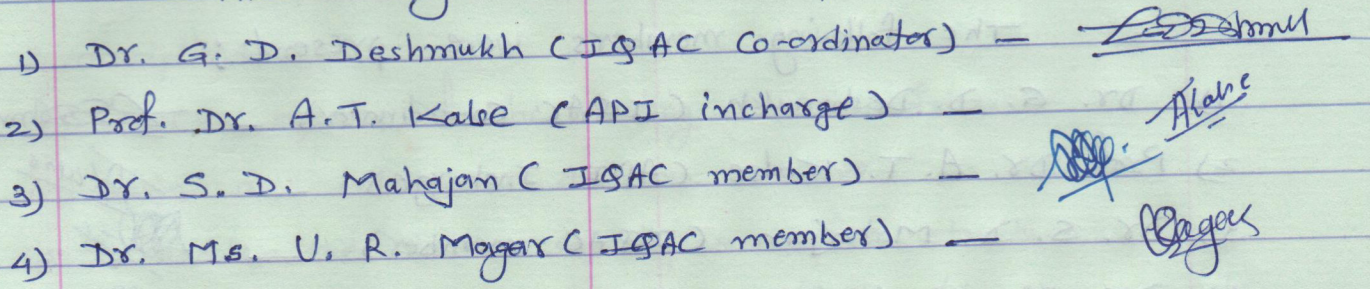 1) Dr. G. D. Deshmukh (IQAC Co-ordinator) —
2) Prof. Dr. A. T. Kale (API incharge) —
3) Dr. S. D. Mahajan (IQAC member) —
4) Dr. Ms. U. R. Magar (IQAC member) —